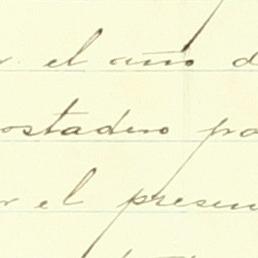 el año d
ostadero pa
r el presen